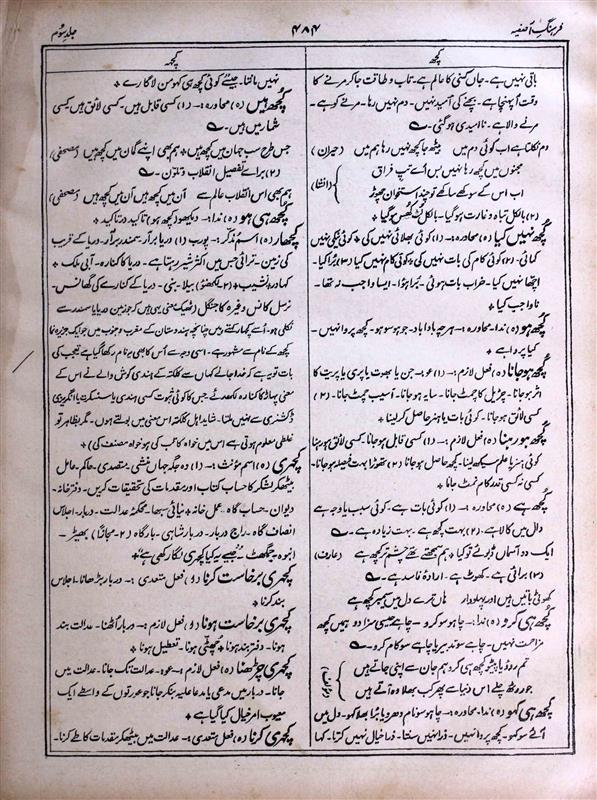 فرہنگ آصفیہ
۴۸۴
جلد سوم
کچھ
باقی نہیں ہے۔ جاں کنی کا عالم ہے۔ تاب و طاقت جا کر مرنے کا
وقت آپہنچا ہے۔ بچنے کی اُمید نہیں۔ دم نہیں رہا۔ مرنے کو ہے۔
مرنے والا ہے۔ نا اُمیدی ہوگئی۔
دم نکلتا ہے اب کوئی دم میں بیٹھ جا کچھ نہیں رہا ہم میں (حیران)
مجنوں میں کچھ رہا نہیں بس اے تپ فراق
اب اس کے سوکھے ساکھے تو چند استخوان چھوڑ (انشا)
(۲) بالکل تباہ و غارت ہوگیا۔ بالکل لُٹ گھس گیا +
کچھ نہیں کیا (ہ) محاورہ:۔ (۱) کوئی بھلائی نہیں کی + کوئی نیکی نہیں
کمائی۔ (۲) کوئی کام کی بات نہیں کی + کوئی کام نہیں کیا (۳) بُرا کیا۔
اچھا نہیں کیا۔ خراب بات ہوئی۔ بُرا ہوا۔ ایسا واجب نہ تھا۔
نا واجب کیا +
کچھ ہو (ہ) ندا۔ محاورہ:۔ ہر چہ بادا باد۔ جو ہو سو ہو۔ کچھ پروا نہیں۔
کیا پروا ہے +
کچھ ہو جانا (ہ) فعل لازم:۔ (۱) عو:۔ جن یا بھوت یا پری یا پریت کا
اثر ہو جانا۔ چڑیل کا چمٹ جانا۔ سایہ ہو جانا۔ آسیب چمٹ جانا۔ (۲)
کسی لائق ہو جانا۔ کوئی بات یا ہنر حاصل کر لینا +
کچھ ہو رہنا (ہ) فعل لازم:۔ (۱) کسی قابل ہو جانا۔ کسی لائق ہو رہنا
کوئی ہنر یا علم سیکھ لینا۔ کچھ حاصل ہو جانا (۲) تھوڑا بہت فیصلہ ہو جانا۔
کسی نہ کسی قدر کام نمٹ جانا +
کچھ ہے (ہ) محاورہ:۔ (۱) کوئی بات ہے۔ کوئی سبب یا وجہ ہے
دال میں کالا ہے۔ (۲) بہت کچھ ہے۔ بہت زیادہ ہے۔
ایک دو آسماں ڈبوئے تو کیا + ہم سمجھتے تھے چشم تر کچھ ہے (عارف)
(۳) بُرائی ہے۔ کھوٹ ہے۔ ارادۂ فاسد ہے۔
کھوٹی باتیں ہیں اور پہلو دار ہاں ترے دل میں سیمبر کچھ ہے
کچھ ہی کرو (ہ) ندا۔ محاورہ:۔ چاہو سو کرو۔ چاہے جیسی سزا دو ہمیں کچھ
مزاحمت نہیں۔ چاہے سو تدبیر یا چاہے سو کام کرو۔
تم روؤ یا پیٹو کچھ ہی کرو ہم جان سے اپنی جاتے ہیں
جو روٹھ چلے اس دنیا سے پھر کب بھلا وہ آتے ہیں
کچھ ہی کہو (ہ) ندا۔ محاورہ:۔ چاہو سو نام دھرو یا بُرا بھلا کہو۔ دل میں
آئے سو کہو۔ کچھ پروا نہیں۔ ذرا نہیں سنتا۔ ذرا خیال نہیں کرتا۔ کہا
کچہ
نہیں مانتا۔ جیسے کوئی کچھ ہی کہو من لاگا رے +
کچھ ہیں (ہ) محاورہ:۔ (۱) کسی قابل ہیں۔ کسی لائق ہیں کسی
شمار میں ہیں۔
جس طرح سب جہان میں کچھ ہیں + ہم بھی اپنے گمان میں کچھ ہیں (مصحفی)
(۲) برائے تفصیل انقلاب و تلون۔
ہم بھی اس انقلاب عالم سے آن میں کچھ ہیں آن میں کچھ ہیں (مصحفی)
کچھ ہی ہو (ہ) ندا:۔ دیکھو (کچھ ہو) تاکید در تاکید +
کچھار (ہ) اسم مذکر:۔ پورب (۱) دریا برار۔ سمندر برار۔ دریا کے قریب
کی زمین۔ ترائی جس میں اکثر شیر رہتا ہے۔ دریا کا کنارہ۔ آبی ملک +
کھادر۔ نشیب + (۲۔ لکھنؤ) بیلا۔ بنی۔ دریا کے کنارے کی گھانس۔
نرسل کانس وغیرہ کا جنگل (ٹھیک معنی یہی ہیں کہ جو زمین دریا یا سمندر سے
نکلی ہو۔ اُسے کچھار کہتے ہیں چنانچہ ہندوستان کے مغرب و جنوب میں جو ایک جزیرہ نما
کچھ کے نام سے مشہور ہے۔ اسی وجہ سے اُس کا بھی یہ نام رکھا گیا ہے تعجب کی
بات تو یہ ہے کہ خدا جانے کہاں سے کلکتہ کے ہندی کوش والے نے اس کے
معنی پہاڑ کا کنارہ لکھدئے۔ جس کا کوئی ثبوت کسی ہندی یا سنسکرت یا انگریزی
ڈکشنری سے نہیں ملتا۔ شاید اہل کلکتہ اس معنی میں بولتے ہوں۔ مگر بظاہر تو
غلطی معلوم ہوتی ہے اس میں خواہ کاتب کی ہو خواہ مصنف کی) +
کچہری (ہ) اسم مؤنث:۔ (۱) وہ جگہ جہاں منشی۔ متصدی۔ حاکم۔ عامل
بیٹھکر لشکر کا حساب کتاب اور مقدمات کی تحقیقات کریں۔ دفتر خانہ۔
دیوان۔ حساب گاہ۔ عمل خانہ + نیائی سبھا۔ محکمہ عدالت۔ دربار۔ اجلاس
انصاف گاہ۔ راج دربار۔ دربار شاہی۔ بارگاہ (۲۔ مجازًا) بھیڑ۔
انبوہ۔ جمگھٹ۔ جیسے یہ کیا کچہری لگا رکھی ہے +
کچہری برخاست کرنا (و) فعل متعدی:۔ دربار بڑھانا۔ اجلاس
بند کرنا +
کچہری برخاست ہونا (و) فعل لازم:۔ دربار اُٹھنا۔ عدالت بند
ہونا۔ دفتر بند ہونا + چھٹی ہونا۔ تعطیل ہونا +
کچہری چڑھنا (ہ) فعل لازم:۔ عو۔ عدالت تک جانا۔ عدالت میں
جانا۔ دربار میں مدعی یا مدعا علیہ بنکر جانا جو عورتوں کے واسطے ایک
معیوب امر خیال کیا گیا ہے +
کچہری کرنا (ہ) فعل متعدی:۔ عدالت میں بیٹھکر مقدمات کا طے کرنا۔